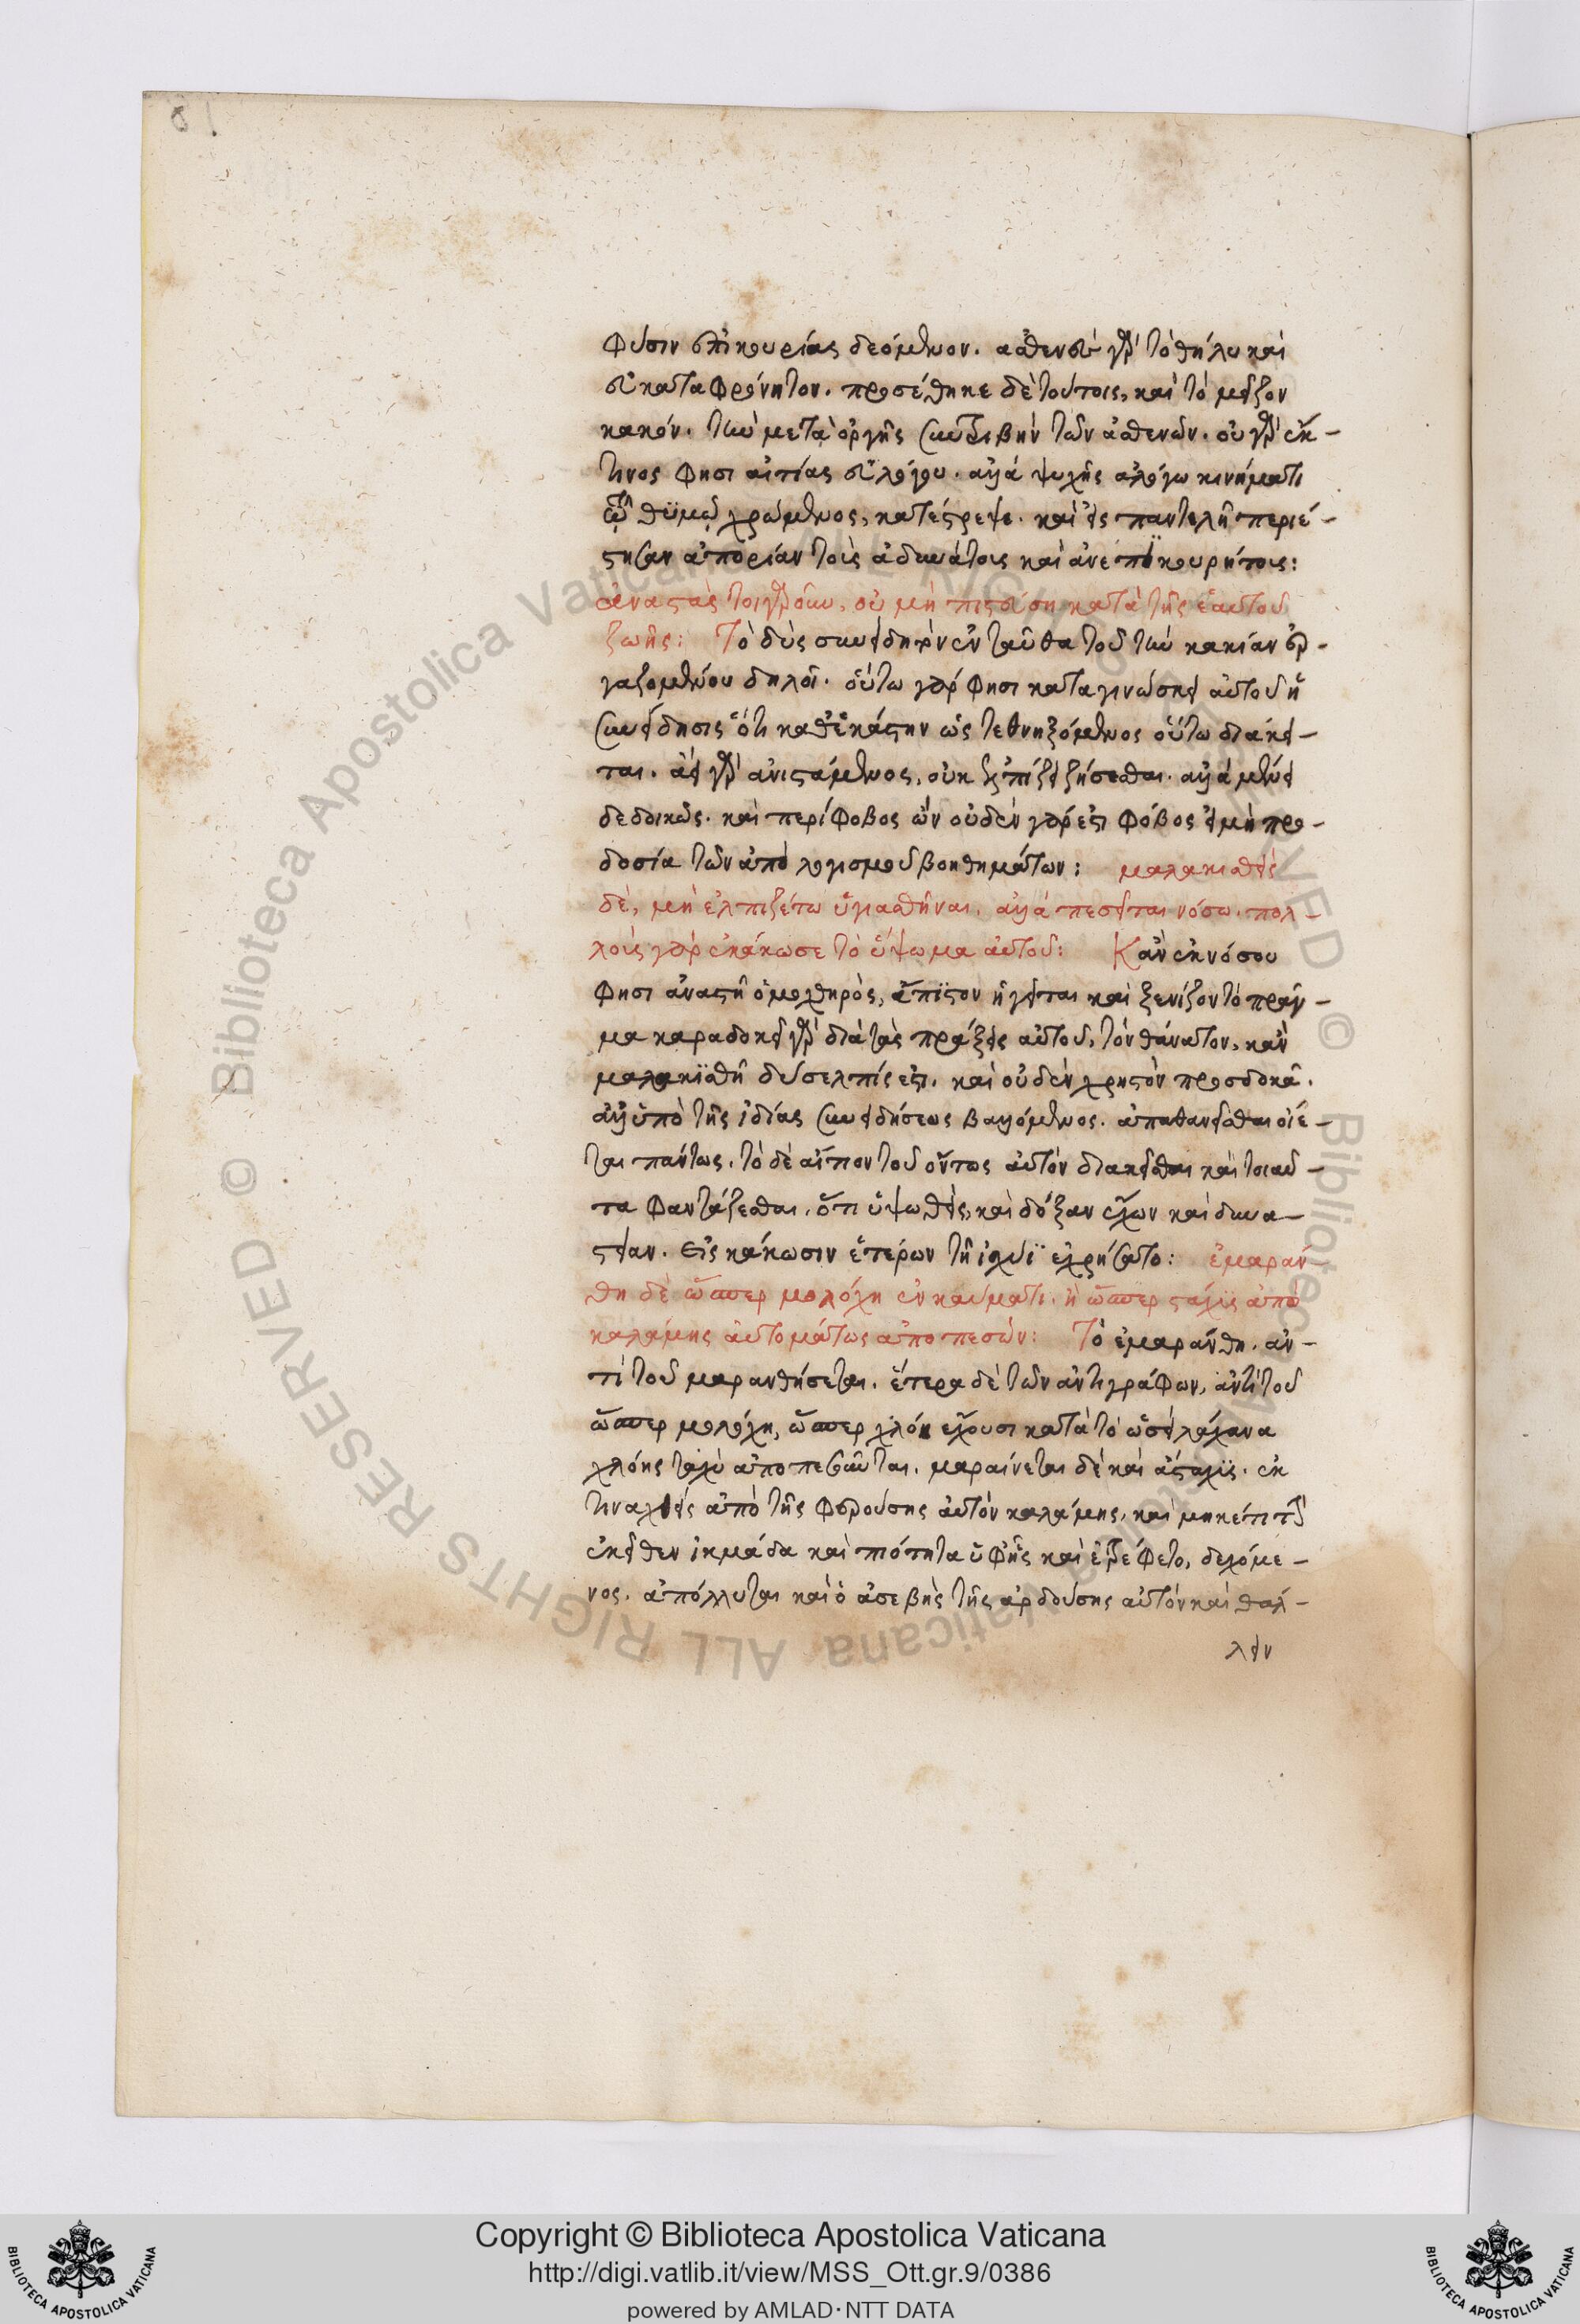 φύσιν ἐπικουρίας δεόμενον. ἀσθενὲς γὰρ τὸ θῆλυ καὶ
εὐκαταφρόνητον. προσέθηκε δὲ τούτοις, καὶ τὸ μεῖζον
κακόν. τὴν μετὰ ὀργῆς συντριβὴν τῶν ἀσθενῶν. οὐ γὰρ ἔκ-
τινος φησι αἰτίας εὐλόγου. ἀλλὰ ψυχῆς ἀλόγω κινήματι
τῷ θυμῷ χρώμενος, κατέστρεψε. καὶ εἰς παντελῆ περιέ-
στησαν ἀπορίαν τοὺς ἀδυνάτοις καὶ ἀνεπικουρήτοις:
ἀναστὰς τοιγαροῦν, οὐ μὴ πιστεύση κατὰ τῆς ἑαυτοῦ
ζωῆς: Τὸ δυσσυνείδητον ἐνταῦθα τοῦ τὴν κακίαν ἐρ-
γαζομένου δηλοῖ. οὕτω γάρ φησι καταγινώσκει αὐτοῦ ἡ
συνείδησις ὅτι καθ' ἑκάστην ὡς τεθνηξόμενος οὕτω διάκει-
ται. ἀεὶ γὰρ ἀνιστάμενος, οὐκ ἐλπίζει ζήσεσθαι. ἀλλὰ μένει
δεδοικὼς. καὶ περίφοβος ὢν οὐδὲν γάρ ἐστι φόβος εἰ μὴ προ-
δοσία τῶν ἀπὸ λογισμοῦ βοηθημάτων: μαλακισθεὶς
δὲ, μὴ ἐλπιζέτω ὑγιασθῆναι, ἀλλὰ πεσεῖται νόσω. πολ-
λοὺς γὰρ ἐκάκωσε τὸ ὕψωμα αὐτοῦ: Κἂν ἐκ νόσου
φησι ἀναστῆ ὁ μοχθηρὸς, ἄπιστον ἡγεῖται καὶ ξενίζον τὸ πρᾶγ-
μα καραδοκεῖ γὰρ διὰ τὰς πράξεις αὐτοῦ, τὸν θάνατον, κἂν
μαλακισθῆ δύσελπίς ἐστι. καὶ οὐδὲν χρηστὸν προσδοκᾶ.
ἀλλ' ὑπὸ τῆς ἰδίας συνειδήσεως βαλλόμενος. ἀποθανεῖσθαι οἴε-
ται πάντως. τὸ δὲ αἴτιον τοῦ οὕτως αὐτὸν διακεῖσθαι καὶ τοιαῦ-
τα φαντάζεσθαι. ὅτι ὑψωθεὶς, καὶ δόξαν ἔχων καὶ δυνα-
στείαν. εἰς κάκωσιν ἑτέρων τῆ ἰσχύϊ ἐχρήσατο: ἐμαράν-
θη δὲ ὥσπερ μολόχη ἐν καύματι. ἢ ὥσπερ στάχυς ἀπὸ
καλάμης αὐτομάτως ἀποπεσών: Τὸ ἐμαράνθη. ἀν-
τὶ τοῦ μαρανθήσεται. ἕτερα δὲ τῶν ἀντιγράφων, ἀντὶ τοῦ
ὥσπερ μολόχη, ὥσπερ χλόη ἔχουσι κατὰ τὸ ὡσεὶ λάχανα
χλόης ταχὺ ἀποπεσοῦνται. μαραίνεται δὲ καὶ ἄσταχυς. ἐκ
τιναχθεὶς ἀπὸ τῆς φερούσης αὐτὸν καλάμης, καὶ μηκέτι τὴν
ἐκεῖθεν ἰκμάδα καὶ πιότητα ὑφ' ἧς καὶ ἐτρέφετο, δεχόμε-
νος. ἀπόλλυται καὶ ὁ ἀσεβὴς τῆς ἀρδούσης αὐτὸν καὶ θάλ-
λειν
Copyright © Biblioteca Apostolica Vaticana
http://digi.vatlib.it/view/MSS_Ott.gr.9/0386
powered by AMLAD·NTT DATA